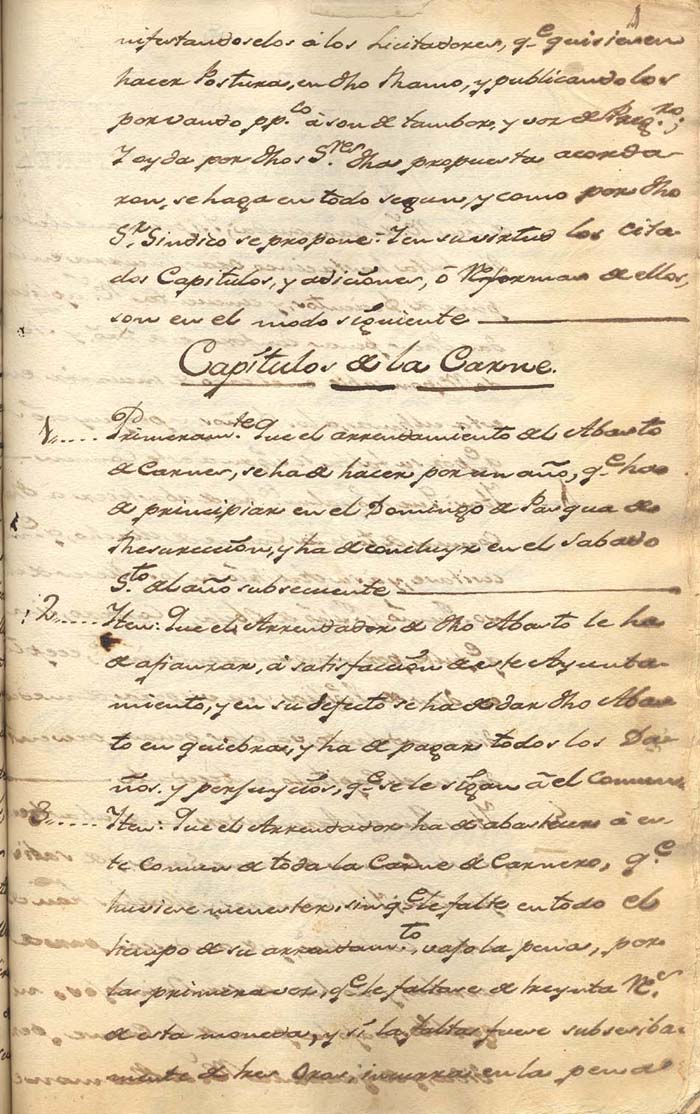 nifestandoselos á los Licitadores, q.e quisiesen
hacer Postura, en dho Ramo, y publicandolos
por vando pp.co á son de tambor, y voz de Preg.ro;
Y oyda por dhos S.res dha propuesta acorda-
ron, se haga en todo segun, y como por dho
S.r Sindico se propone: Y en su virtud los cita-
dos Capitulos, y adiciones, ó Reformas de ellos,
son en el modo siguiente
Capítulos de la Carne.
1..... Primeram.te Que el arrendamiento del Abasto
de Carnes, se ha de hacer por un año, q.e ha
de principiar en el Domingo de Pasqua de
Resurección, y ha de concluyr en el Sabado
S.to del año subsecuente
2..... Iten: Que el Arrendador de dho Abasto le ha
de afianzar, á satisfacción de este Ayunta-
miento, y en su defecto se ha de dar dho Abas-
to en quiebra, y ha de pagar todos los Da-
ños y perjuycios, q.e se le sigan á el comun
3..... Iten: Que el Arrendador ha de abastecer á es-
te Comun de toda la Carne de Carnero, q.e
huviere menester, sin q.e le falte en todo el
tiempo de su arrendam.to, vajo la pena, por
la primera vez, q.e le faltase de treynta R.s
de esta moneda, y si la falta fuese subsesiba-
mente de tres Oras, incurra en la pena